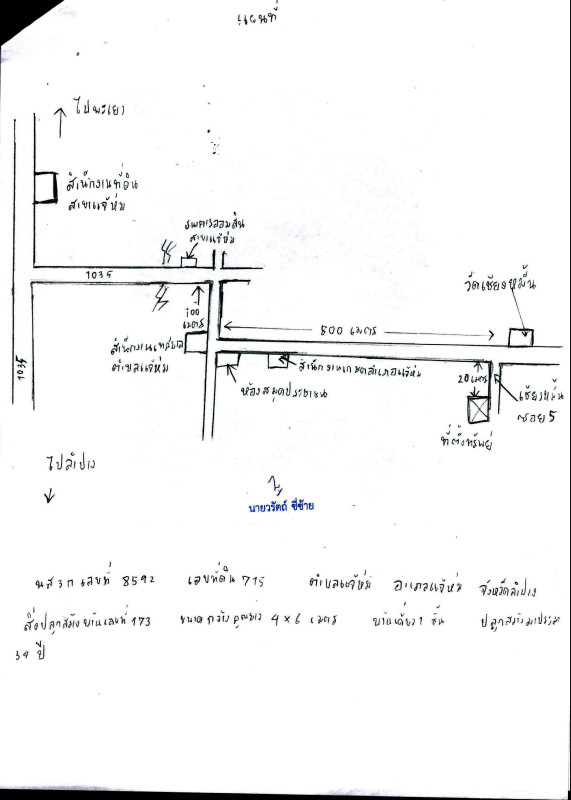 แผนที่
ไปพะเยา
สำนักงานที่ดิน
สาขาแจ้ห่ม
ธนาคารออมสิน
สาขาแจ้ห่ม
1035
100
เมตร
500 เมตร
วัดเชียงหมั้น
สำนักงานเทศบาล
ตำบลแจ้ห่ม
สำนักงานเกษตรอำเภอแจ้ห่ม
ห้องสมุดประชาชน
20 เมตร
เชียงหมั้น
ซอย 5
ที่ตั้งทรัพย์
1035
ไปลำปาง
นายวรัตถ์ ชี่ช้าย
นส 3 ก เลขที่ 8592 เลขที่ดิน 715 ตำบลแจ้ห่ม อำเภอแจ้ห่ม จังหวัดลำปาง
สิ่งปลูกสร้าง บ้านเลขที่ 173 ขนาดกว้างคูณยาว 4 x 6 เมตร บ้านเดี่ยว 1 ชั้น ปลูกสร้างมาประมาณ
34 ปี